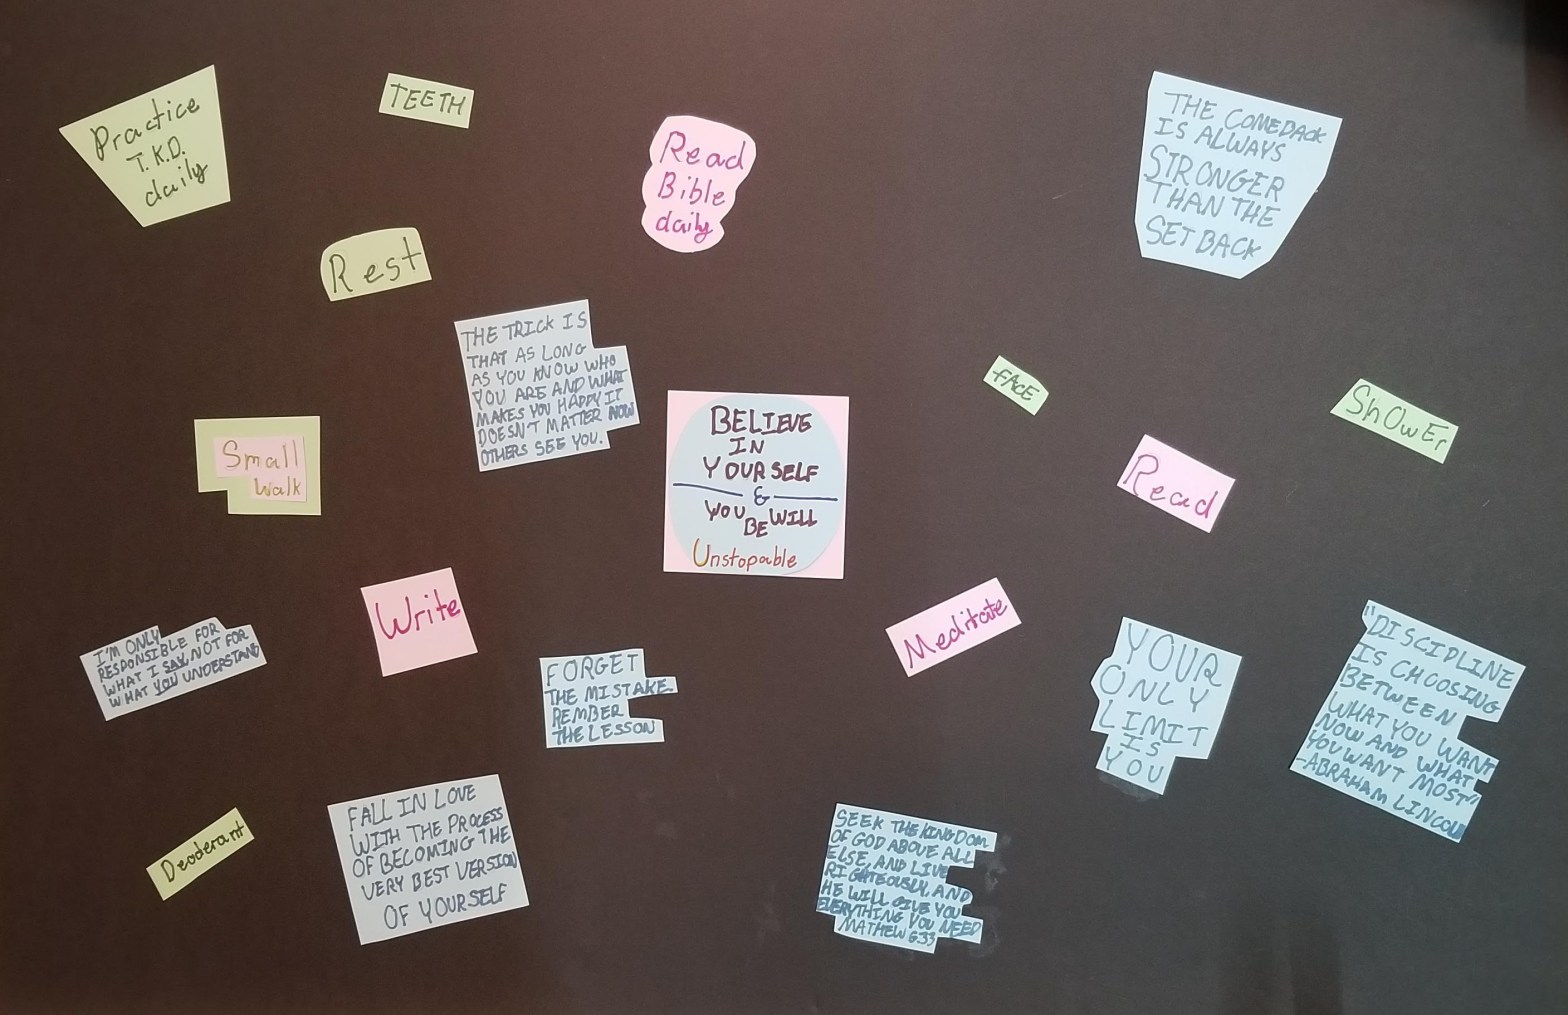 Practice
T.K.D.
daily
TEETH
Read
Bible
daily
THE COMEBACK
IS ALWAYS
STRONGER
THAN THE
SET BACK
Rest
THE TRICK IS
THAT AS LONG
AS YOU KNOW WHO
YOU ARE AND WHAT
MAKES YOU HAPPY IT
DOESN'T MATTER HOW
OTHERS SEE YOU.
FACE
ShOwEr
BELIEVE
IN
YOURSELF
&
YOU WILL
BE
Unstopable
Small
Walk
Read
Write
Meditate
I'M ONLY
RESPONSIBLE FOR
WHAT I SAY NOT FOR
WHAT YOU UNDERSTAND
FORGET
THE MISTAKE
REMBER
THE LESSON
YOUR
ONLY
LIMIT
IS
YOU
"DISCIPLINE
IS CHOOSING
BETWEEN
WHAT YOU WANT
NOW AND WHAT
YOU WANT MOST"
-ABRAHAM LINCOLN
Deoderant
FALL IN LOVE
WITH THE PROCESS
OF BECOMING THE
VERY BEST VERSION
OF YOURSELF
SEEK THE KINGDOM
OF GOD ABOVE ALL
ELSE AND LIVE
RIGHTEOUSLY AND
HE WILL GIVE YOU
EVERYTHING YOU NEED
MATHEW 6:33